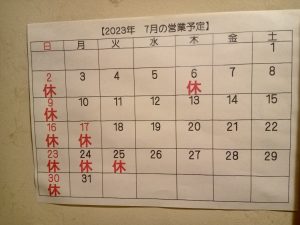 【2023年 7月の営業予定】
日 月 火 水 木 金 土
1
2 3 4 5 6 7 8
休 休
9 10 11 12 13 14 15
休
16 17 18 19 20 21 22
休 休
23 24 25 26 27 28 29
休 休 休
30 31
休